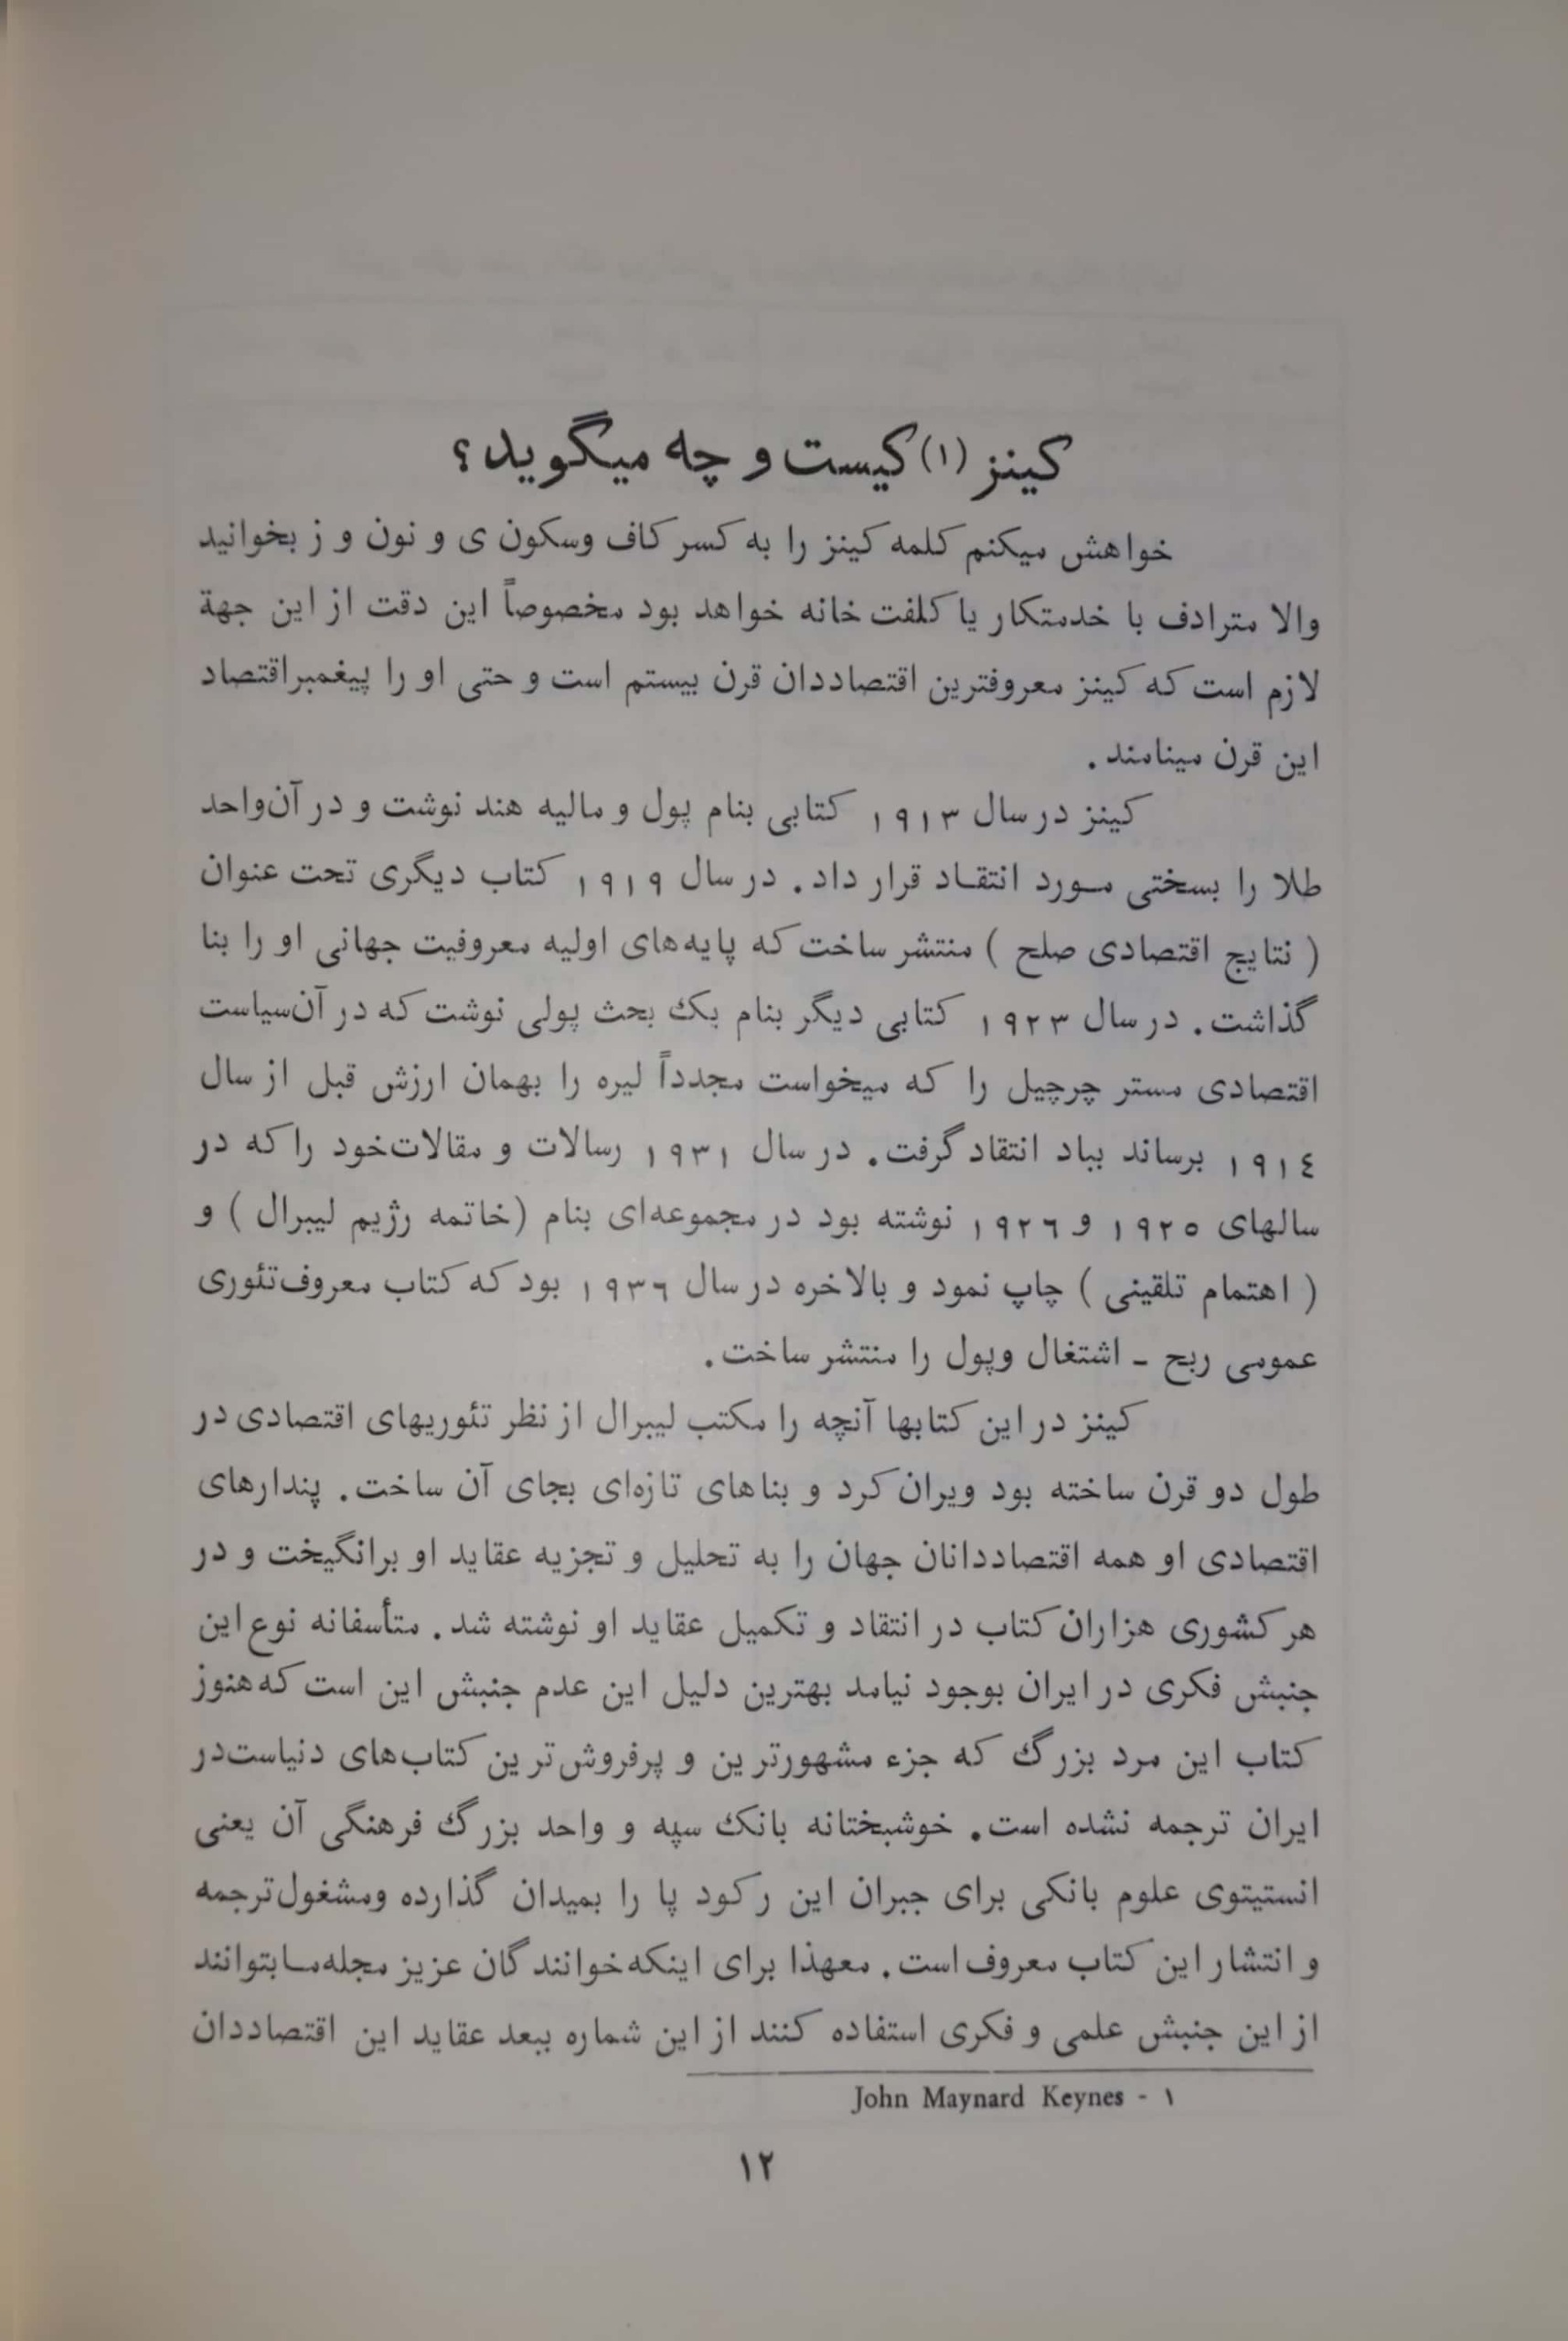 کینز (۱) کیست و چه میگوید؟
خواهش میکنم کلمه کینز را به کسر کاف وسکون ی و نون و ز بخوانید
والا مترادف با خدمتکار یا کلفت خانه خواهد بود مخصوصاً این دقت از این جهة
لازم است که کینز معروفترین اقتصاددان قرن بیستم است و حتی او را پیغمبر اقتصاد
این قرن مینامند .
کینز در سال ۱۹۱۳ کتابی بنام پول و مالیه هند نوشت و در آن واحد
طلا را بسختی مورد انتقاد قرار داد. در سال ۱۹۱۹ کتاب دیگری تحت عنوان
( نتایج اقتصادی صلح ) منتشر ساخت که پایه‌های اولیه معروفیت جهانی او را بنا
گذاشت. در سال ۱۹۲۳ کتابی دیگر بنام یک بحث پولی نوشت که در آن سیاست
اقتصادی مستر چرچیل را که میخواست مجدداً لیره را بهمان ارزش قبل از سال
۱۹۱٤ برساند بباد انتقاد گرفت. در سال ۱۹۳۱ رسالات و مقالات خود را که در
سالهای ۱۹۲۵ و ۱۹۲٦ نوشته بود در مجموعه‌ای بنام (خاتمه رژیم لیبرال ) و
( اهتمام تلقینی ) چاپ نمود و بالاخره در سال ۱۹۳٦ بود که کتاب معروف تئوری
عمومی ربح - اشتغال وپول را منتشر ساخت.
کینز در این کتابها آنچه را مکتب لیبرال از نظر تئوریهای اقتصادی در
طول دو قرن ساخته بود ویران کرد و بناهای تازه‌ای بجای آن ساخت. پندارهای
اقتصادی او همه اقتصاددانان جهان را به تحلیل و تجزیه عقاید او برانگیخت و در
هر کشوری هزاران کتاب در انتقاد و تکمیل عقاید او نوشته شد. متأسفانه نوع این
جنبش فکری در ایران بوجود نیامد بهترین دلیل این عدم جنبش این است که هنوز
کتاب این مرد بزرگ که جزء مشهورترین و پرفروش‌ترین کتاب‌های دنیاست در
ایران ترجمه نشده است. خوشبختانه بانک سپه و واحد بزرگ فرهنگی آن یعنی
انستیتوی علوم بانکی برای جبران این رکود پا را بمیدان گذارده ومشغول ترجمه
و انتشار این کتاب معروف است. معهذا برای اینکه خوانندگان عزیز مجله ما بتوانند
از این جنبش علمی و فکری استفاده کنند از این شماره ببعد عقاید این اقتصاددان
۱ - John Maynard Keynes
۱۲